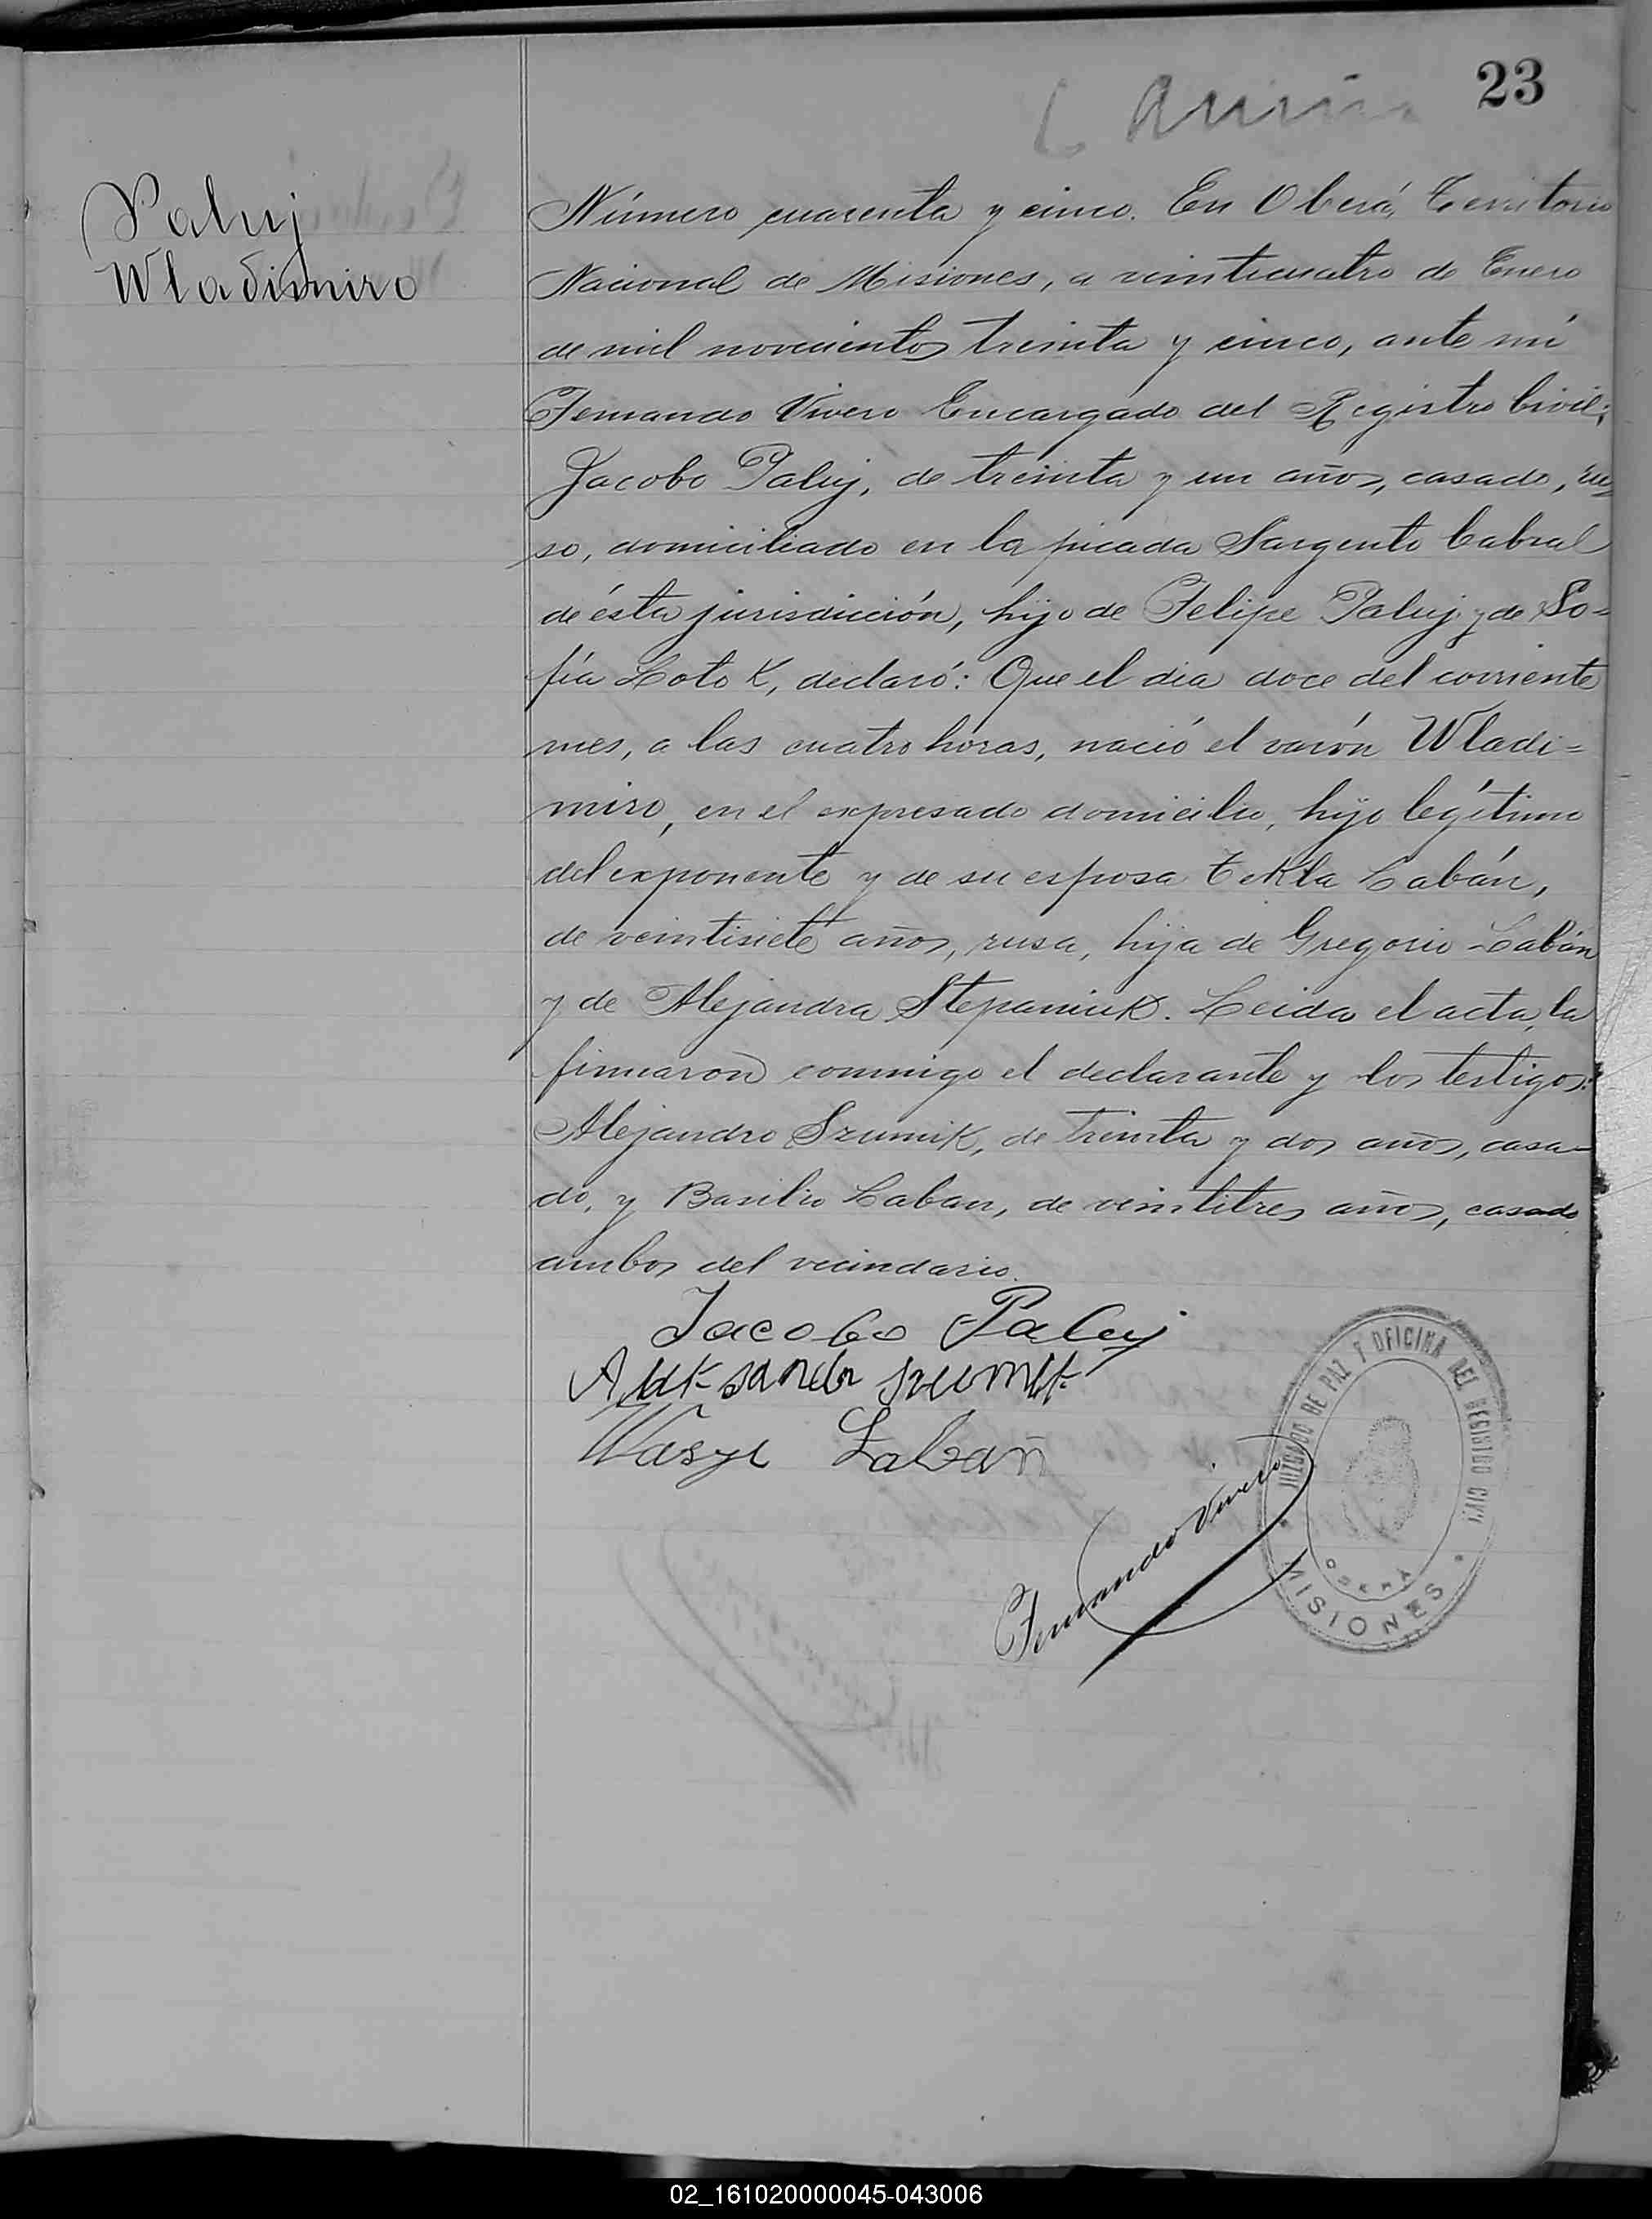 23
Paluj
Wladimiro
Número cuarenta y cinco. En Oberá, Territorio
Nacional de Misiones, a veinticuatro de Enero
de mil novecientos treinta y cinco, ante mí
Fernando Vivero Encargado del Registro Civil;
Jacobo Paluj, de treinta y un años, casado, ru=
so, domiciliado en la picada Sargento Cabral
de ésta jurisdicción, hijo de Felipe Paluj y de So=
fía Lotok, declaró: Que el dia doce del corriente
mes, a las cuatro horas, nació el varón Wladi=
miro, en el expresado domicilio, hijo legítimo
del exponente y de su esposa Tekla Labán,
de veintisiete años, rusa, hija de Gregorio Labán
y de Alejandra Stepaniuk. Leida el acta, la
firmaron conmigo el declarante y los testigos:
Alejandro Szumik, de treinta y dos años, casa=
do, y Basilio Laban, de veintitres años, casado
ambos del vecindario.
Jacobo Paluj
Aleksandr Szumik
Wasyl Laban
Fernando Vivero
JUZGADO DE PAZ Y OFICINA DEL REGISTRO CIVIL
OBERÁ
MISIONES
02_161020000045-043006